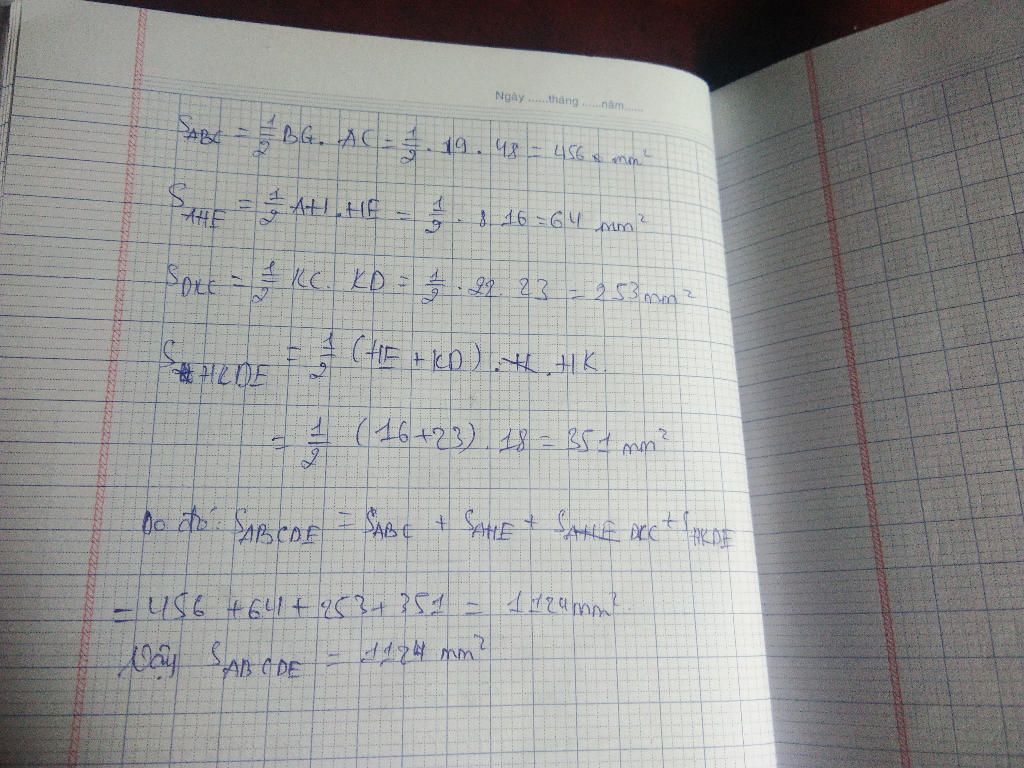 Ngày ......tháng ......năm......
S_ABC = 1/2 BG. AC = 1/2 . 19 . 48 = 456 mm²
S_AHE = 1/2 AH . HE = 1/2 . 8 16 = 64 mm²
S_DKC = 1/2 KC. KD = 1/2 . 22. 23 = 253 mm²
S_HKDE = 1/2 (HE + KD) . HK
= 1/2 (16+23) . 18 = 351 mm²
Do đó: S_ABCDE = S_ABC + S_AHE + S_DKC + S_HKDE
= 456 + 64 + 253 + 351 = 1124 mm².
Vậy S_ABCDE = 1124 mm²